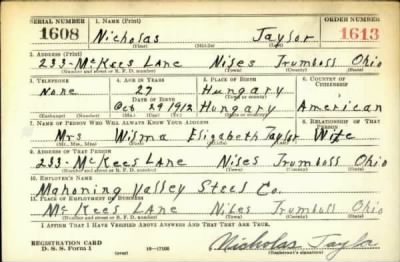 SERIAL NUMBER 1. NAME (Print) ORDER NUMBER
1608 Nicholas Taylor 1613
(First) (Middle) (Last)
2. ADDRESS (Print)
233-McKees LANE Niles Trumbull Ohio
(Number and street or R. F. D. number) (Town) (County) (State)
3. TELEPHONE 4. AGE IN YEARS 5. PLACE OF BIRTH 6. COUNTRY OF CITIZENSHIP
None 27 Hungary
DATE OF BIRTH (Town or county)
Oct 29 1912 Hungary American
(Mo.) (Day) (Yr.) (State or country)
7. NAME OF PERSON WHO WILL ALWAYS KNOW YOUR ADDRESS 8. RELATIONSHIP OF THAT PERSON
Mrs Wilma Elizabeth Taylor Wife
(Mr., Mrs., Miss) (First) (Middle) (Last)
9. ADDRESS OF THAT PERSON
233-McKees LANE Niles Trumbull Ohio
(Number and street or R. F. D. number) (Town) (County) (State)
10. EMPLOYER'S NAME
Mahoning Valley Steel Co.
11. PLACE OF EMPLOYMENT OR BUSINESS
McKees LAne Niles Trumbull Ohio
(Number and street or R. F. D. number) (Town) (County) (State)
I AFFIRM THAT I HAVE VERIFIED ABOVE ANSWERS AND THAT THEY ARE TRUE.
REGISTRATION CARD
D. S. S. Form 1 (over) 16—17105 Nicholas Taylor
(Registrant's signature)